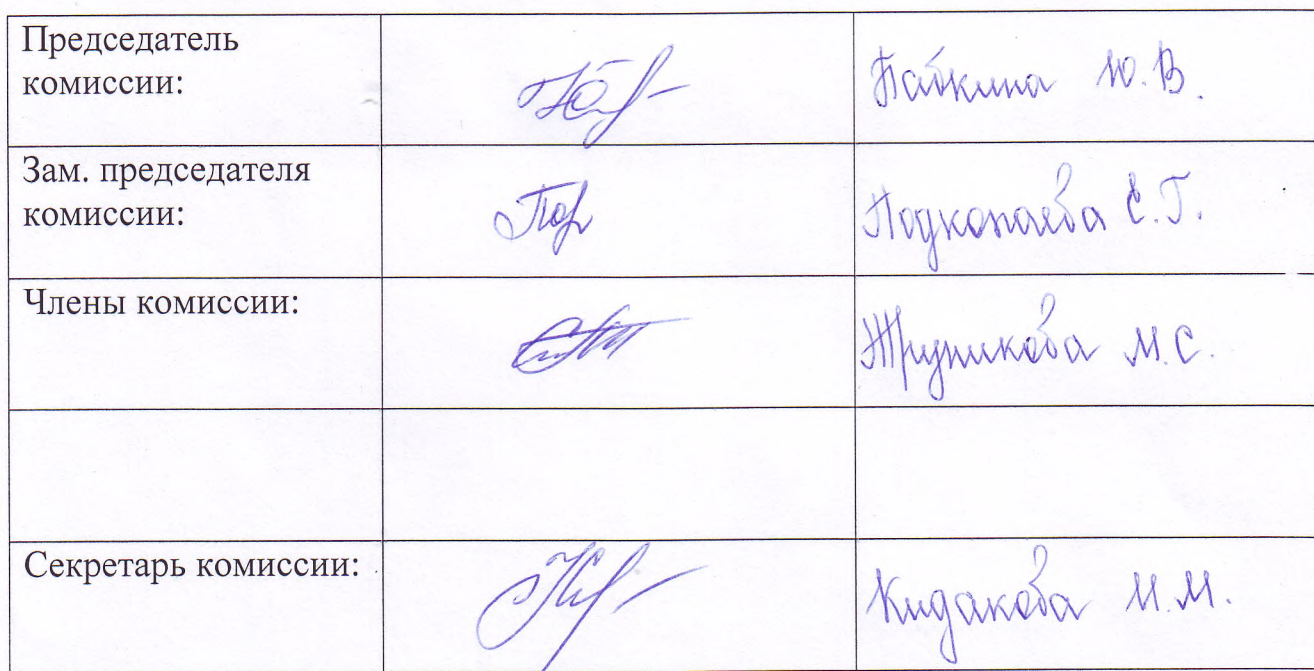 Председатель
комиссии:
Ю. В.
Зам. председателя
комиссии:
Подкопаева Е. Г.
Члены комиссии:
М. С.
Секретарь комиссии:
Кидакова М. М.